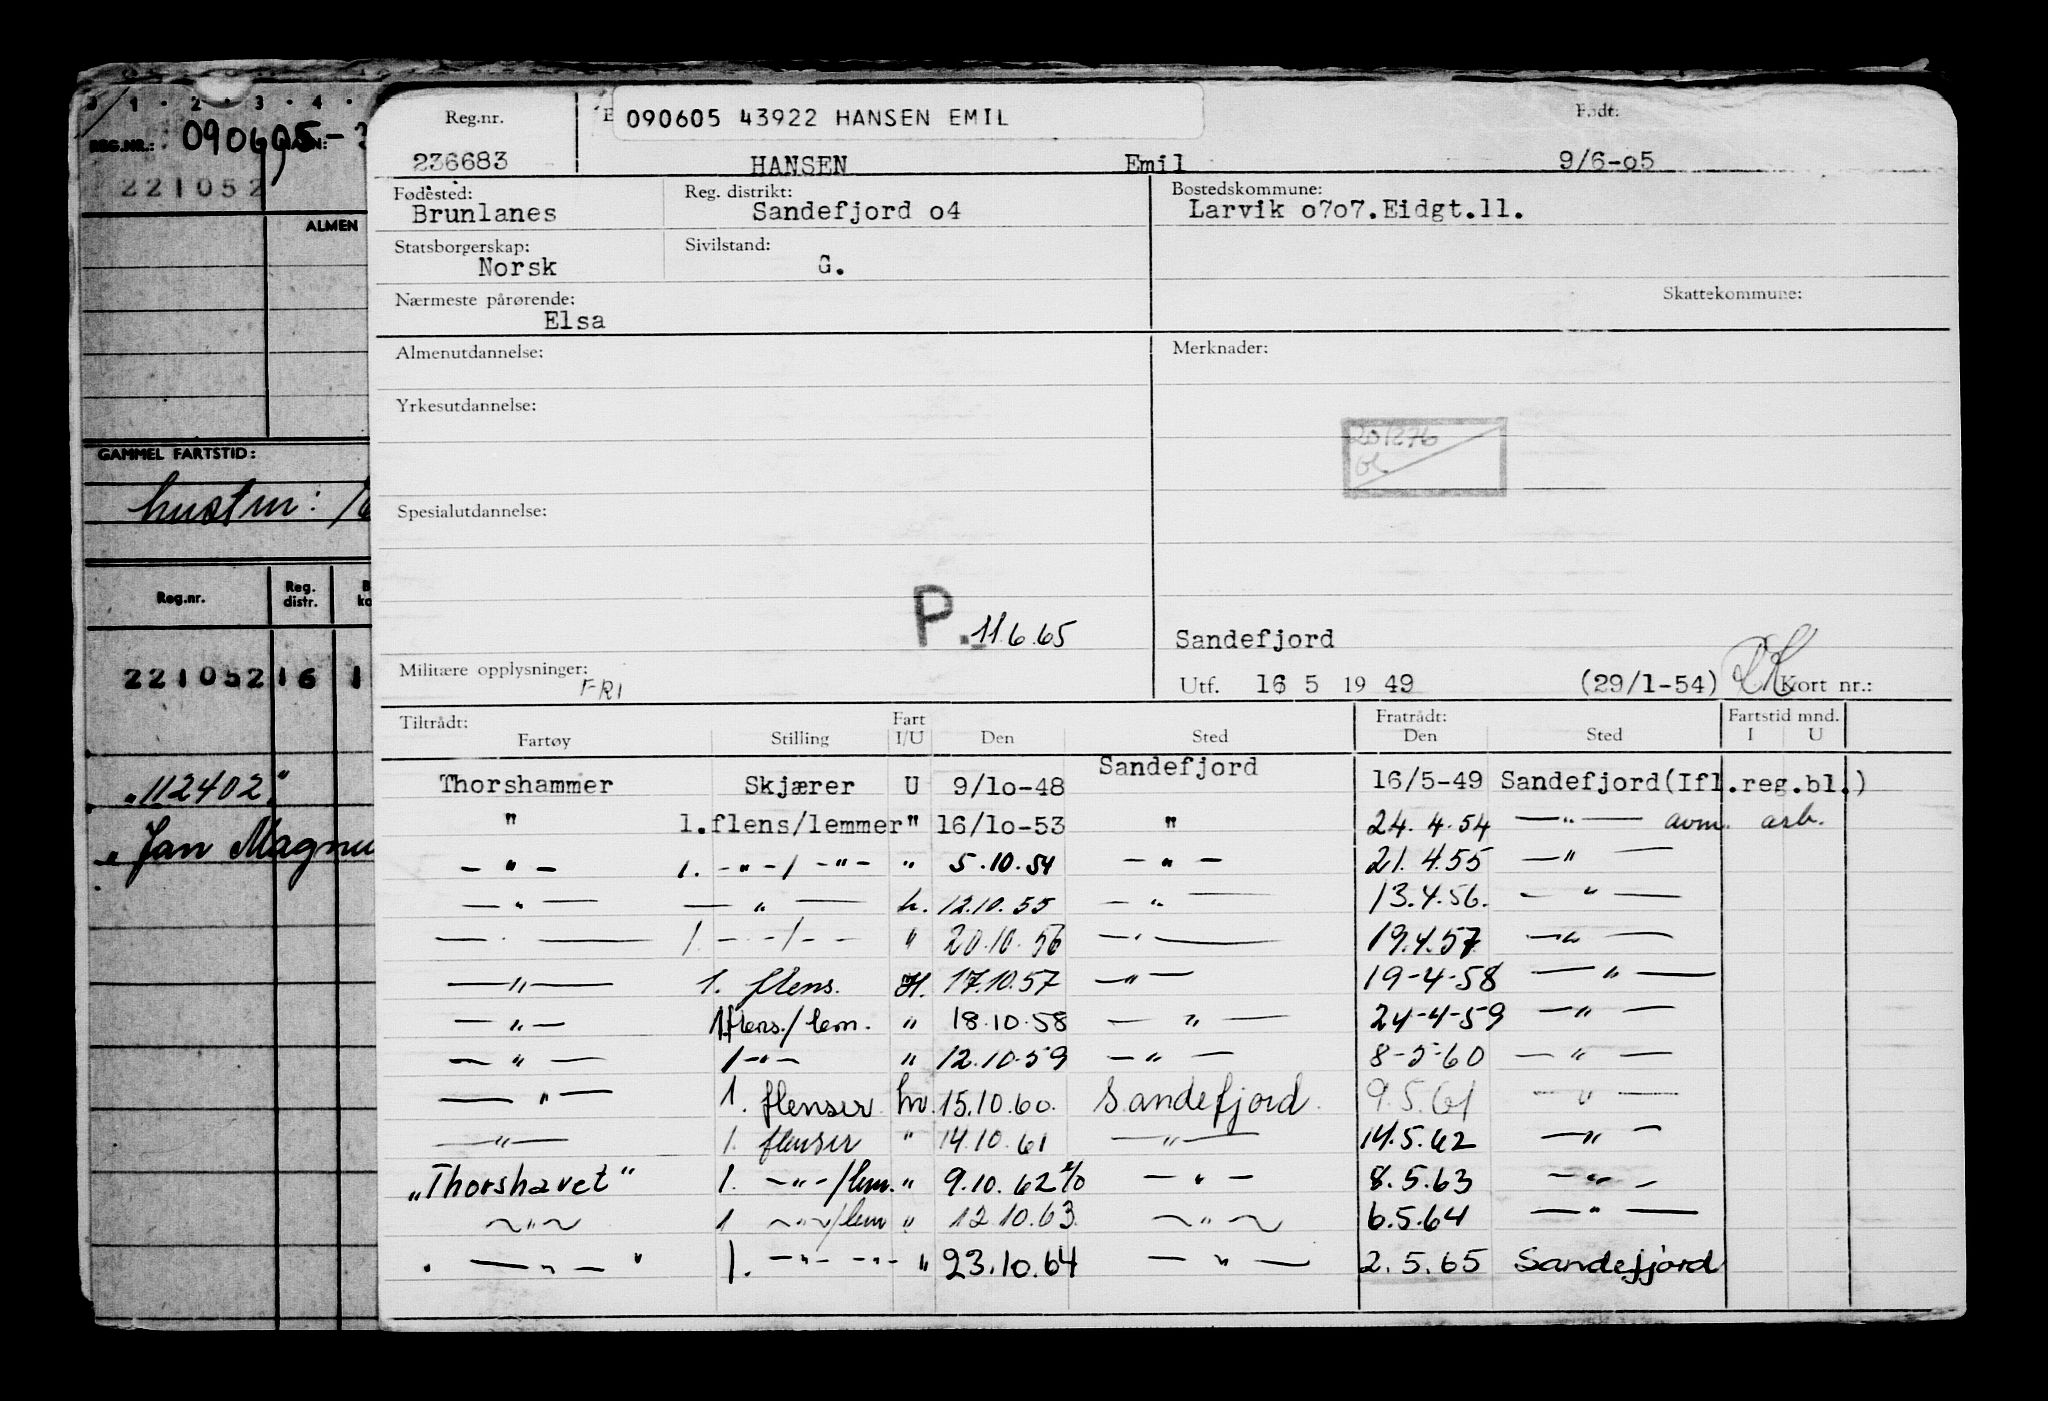 0 1 · 2 · 3 · 4 ·
REG.NR.: 090605- NAVN:
221052
ALMEN
GAMMEL FARTSTID:
hustru:
Reg.nr. Reg. distr.
221052 16 1
"112402"
"Jan Magnu
Reg.nr. 090605 43922 HANSEN EMIL Født:
236683 HANSEN Emil 9/6-o5
Fødested: Reg. distrikt: Bostedskommune:
Brunlanes Sandefjord o4 Larvik o7o7.Eidgt.ll.
Statsborgerskap: Sivilstand:
Norsk G.
Nærmeste pårørende: Skattekommune:
Elsa
Almenutdannelse: Merknader:
Yrkesutdannelse:
201276
Spesialutdannelse:
P. 11.6.65
Sandefjord
Militære opplysninger: FRI
Utf. 16 5 19 49 (29/1-54) Kort nr.:
Tiltrådt: Fart Fratrådt: Fartstid mnd.
Fartøy Stilling I/U Den Sted Den Sted I U
Thorshammer Skjærer U 9/lo-48 Sandefjord 16/5-49 Sandefjord(Ifl.reg.bl.)
" l.flens/lemmer " 16/lo-53 " 24.4.54 —"— avm. arb.
—"— 1. -"-/-"- " 5.10.54 —"— 21.4.55 —"—
—"— —"— h. 12.10.55 —"— 13.4.56. —"—
—"— 1. -"-/-"- " 20.10.56 —"— 19.4.57 —"—
—"— 1. flens. H. 17.10.57 —"— 19-4-58 —"—
—"— 1.flens./lem. " 18.10.58 —"— 24-4-59 —"—
—"— 1-"- " 12.10.59 —"— 8-5-60 —"—
—"— 1. flenser hv. 15.10.60. Sandefjord. 9.5.61 —"—
—"— 1. flenser " 14.10.61 —"— 14.5.62 —"—
"Thorshavet" 1. -"-/lem. " 9.10.62 —"— 8.5.63 —"—
~"~ 1 ~"~/lem " 12.10.63. ~"~ 6.5.64 —"—
" —"— " 1. -"- -"- " 23.10.64 —"— 2.5.65 Sandefjord